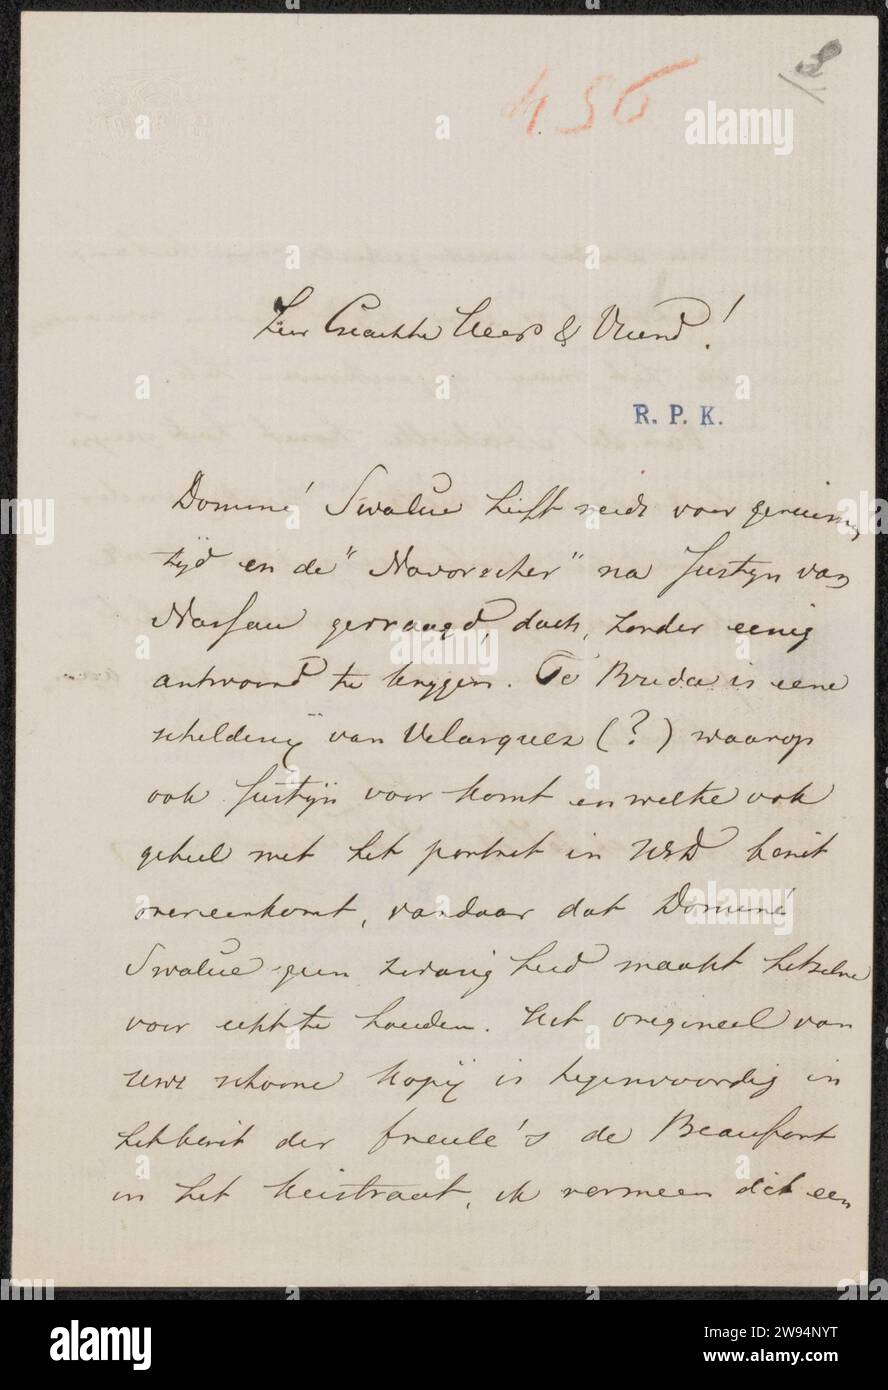 3
456
Zeer Geachte Heer & Vriend!
R. P. K.
Dominé Swalue heeft reeds voor geruimen
tijd en de "Navorscher" na Justijn van
Nassau gevraagd, doch, zonder eenig
antwoord te krijgen. Te Breda is eene
schilderij van Velasques (?) waarop
ook Justijn voor komt en welke ook
geheel met het portret in UEd bezit
overeenkomt, vandaar dat Dominé
Swalue geen zwarigheid maakt hetzelve
voor echt te houden. Het origineel van
uwe schoone kopij is tegenwoordig in
het bezit der freule's de Beaufort
in het Keistraat, ik vermeen dit een
alamy
alamy
Image ID: 2W94NYT
www.alamy.com